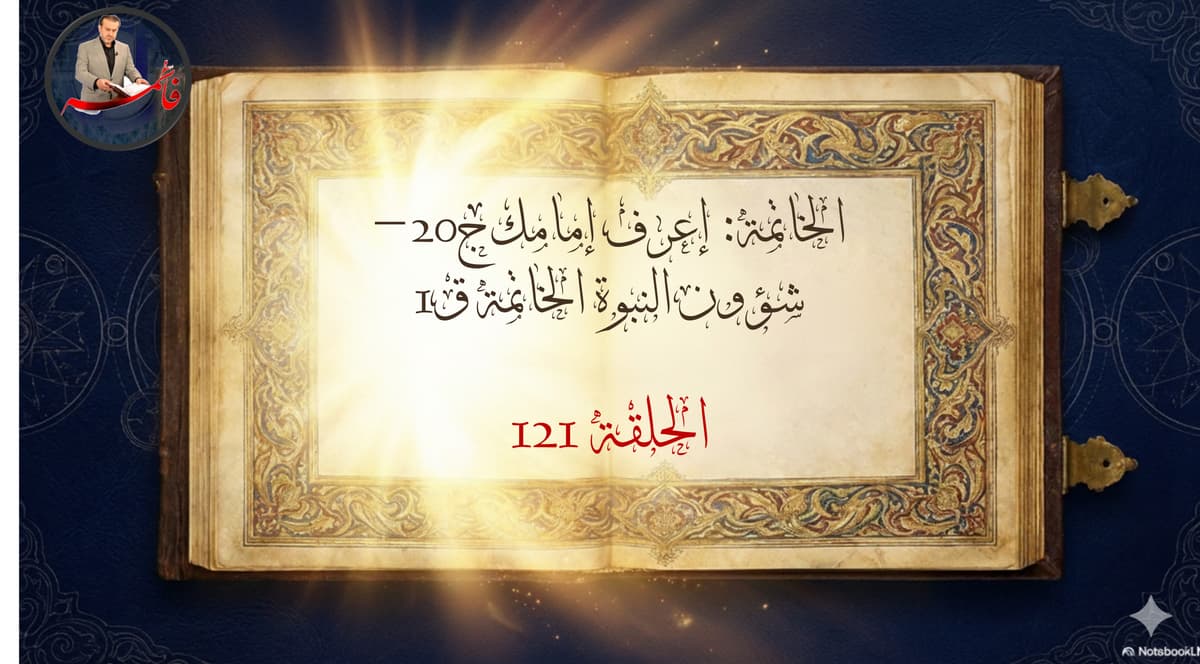 فاطمة
الخاتمة: إعرف إمامك ج20 –
شؤون النبوة الخاتمة ق1
الحلقة 121
NotsbookL